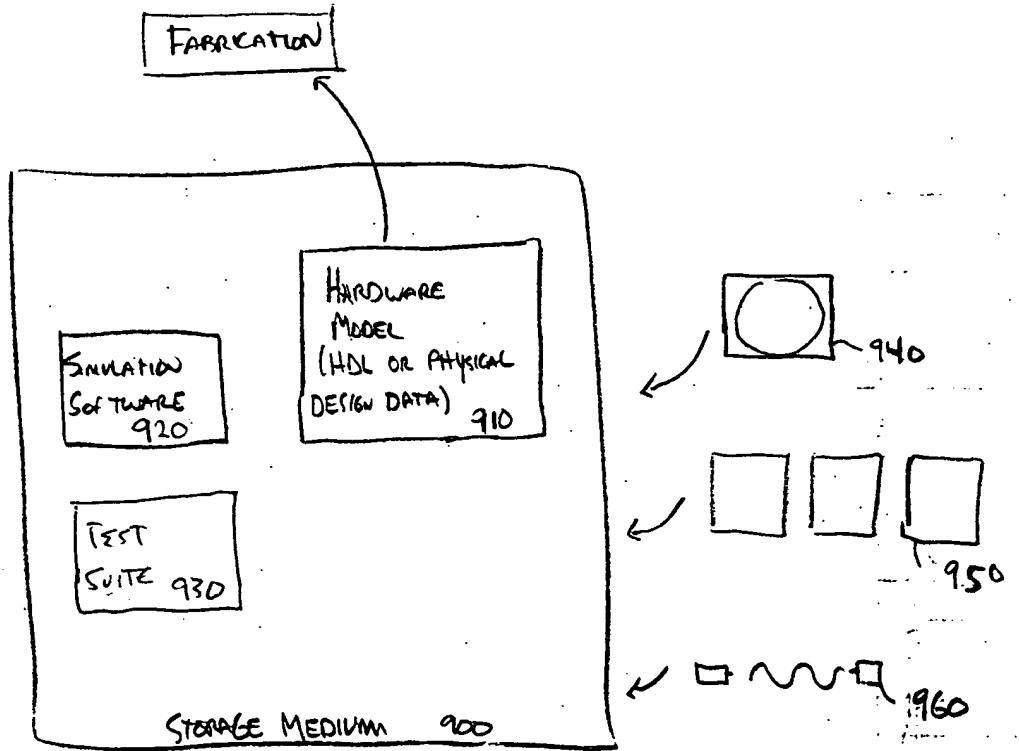 FABRICATION
HARDWARE
MODEL
(HDL OR PHYSICAL
DESIGN DATA)
910
SIMULATION
SOFTWARE
920
TEST
SUITE 930
STORAGE MEDIUM 900
940
950
960